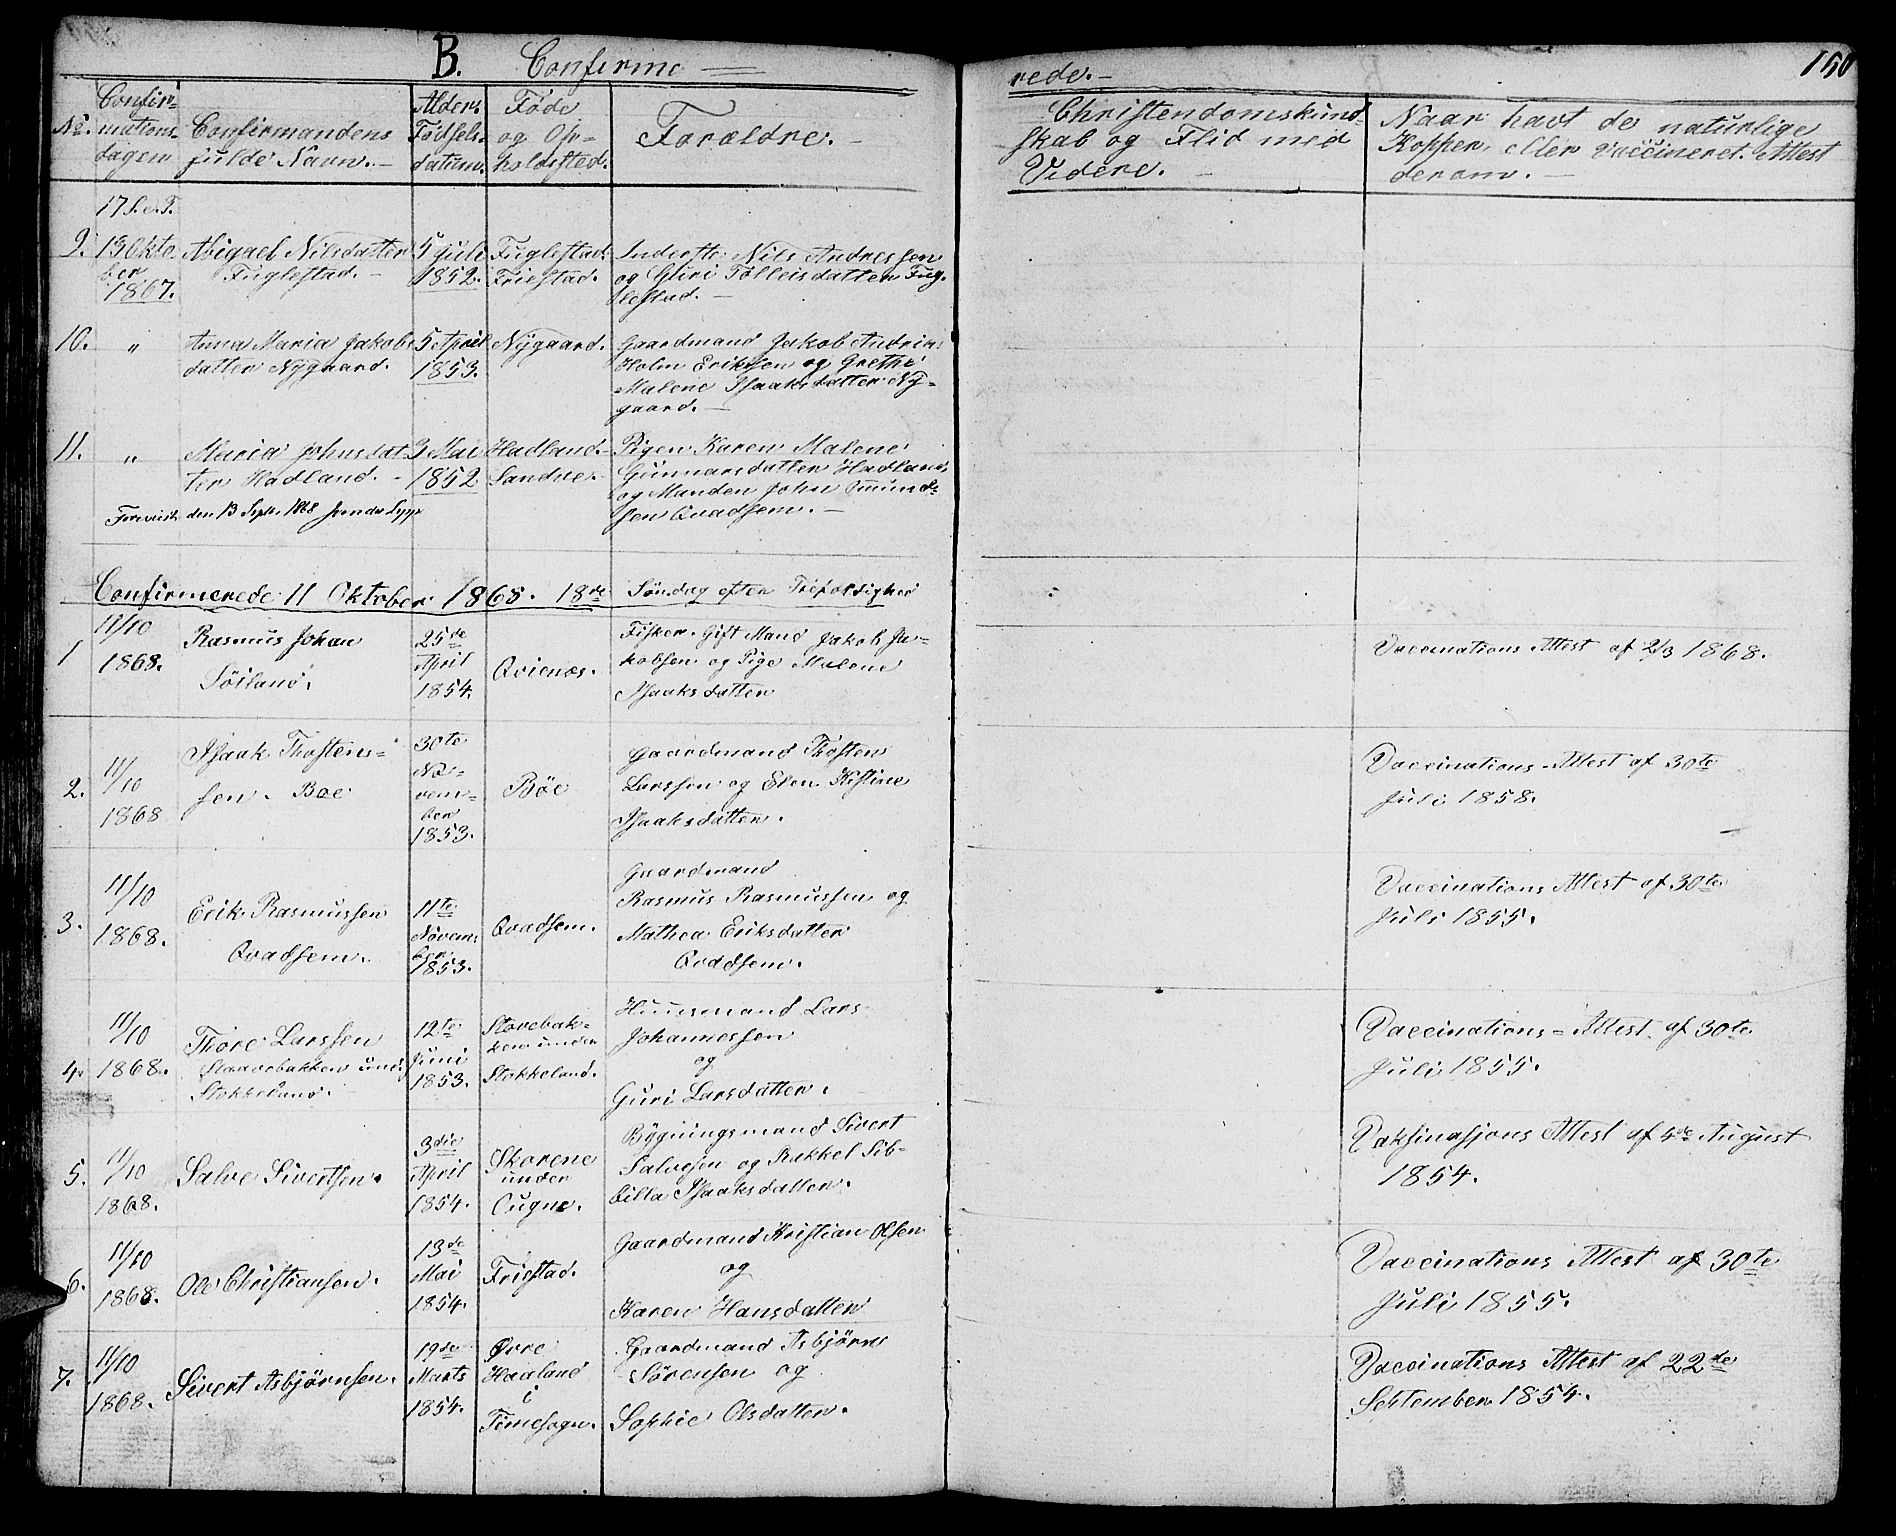 B. Confirme
rede.-
150
No.
Confir-
mations-
dagen
Confirmandens
fulde Navn.-
Alder.
Fødsels-
datum.
Føde
og Op-
holdsted.
Forældre.-
Christendomskund-
skab og Flid med
Videre.-
Naar havt de naturlige
Kopper, eller vaccineret. Attest
derom.-
17 S.e.T.
9.
13 Okto-
ber
1867.
Abigael Nilsdatter
Fuglestad.-
5 Juli
1852.
Fuglestad.
Friestad.
Inderste Nils Andressen
og Guri Tolleisdatter Fug-
lestad.-
10.
"
Anna Maria Jakobs-
datter Nygaard.
5 April
1853.
Nygaard.
Gaardmand Jakob Andrias
Holm Eriksen og Grethe
Malene Isaaksdatter Ny-
gaard.-
11.
"
Maria Johnsdat-
ter Hadland.-
3 Mai
1852.
Hadland.
Sandve.
Pigen Karen Malene
Gunnarsdatter Hadland
og Manden John Omund-
sen Qvadsem.-
den 13 Septr. 1868
Confirmerede 11 Oktober 1868. 18de Søndag efter Trefoldighed
1
11/10
1868.
Rasmus Johan
Söiland.
25de
April
1854.
Qvienæs.
Fisker. Gift Mand Jakob Ja-
kobsen og Pige Malene
Isaaksdatter
Vaccinations Attest af 2/3 1868.
2.
11/10
1868
Isaak Thosten-
sen. Boe
30te
No-
vem-
ber
1853.
Böe
Gaardmand Thosten
Larssen og Elen Kistine
Isaaksdatter.
Vaccinations-Attest af 30te
Juli 1858.
3.
11/10
1868.
Erik Rasmussen
Qvadsem.
11te
Novem-
ber
1853.
Qvadsem.
Gaardmand
Rasmus Rasmussen og
Mathea Eriksdatter
Qvadsem.
Vaccinations Attest af 30te
Juli 1855.
4.
11/10
1868.
Thore Larssen
Staavebakken und.
Stokkeland.
12te
Juni
1853.
Storebak-
ken under
Stokkeland.
Huusmand Lars
Johannessen
og
Guri Larsdatter.
Vaccinations-Attest af 30te
Juli 1855.
5.
11/10
1868.
Salve Sivertsen.
3die
April
1854.
Skarene
under
Ougne.
Bygningsmand Sivert
Salvesen og Rakkel Sib-
billa Isaaksdatter.
Vaksinasjons Attest af 4de August
1854.
6.
11/10
1868.
Ole Christiansen.
13de
Mai
1854.
Friestad.
Gaardmand Kristian Olsen
og
Karen Hansdatter
Vaccinations Attest af 30te
Juli 1855.
7.
11/10
1868.
Sivert Asbjørnsen.
19de
Marts
1854.
Øvre
Haaland
i
Timesogn.
Gaardmand Asbjørn
Sørensen og
Sophie Olsdatter.
Vaccinations Attest af 22de
September 1854.